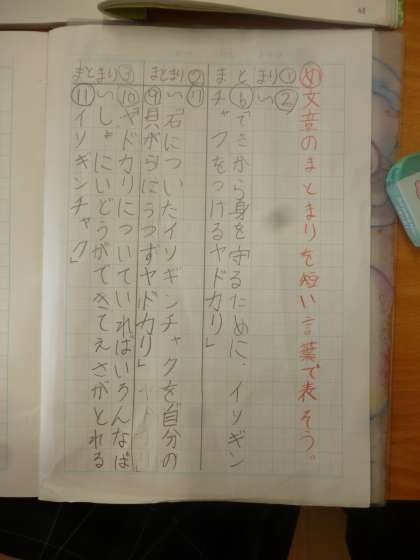 め文章のまとまりを短い言葉で表そう。
まとまり①
②
⑥てきから身を守るために、イソギン
チャクをつけるヤドカリ」
まとまり②
⑦
石についたイソギンチャクを自分の
⑨貝がらにうつすヤドカリ」
まとまり③
⑩ヤドカリについていればいろんなば
いしょにいどうができてえさがとれる
⑪イソギンチャク」